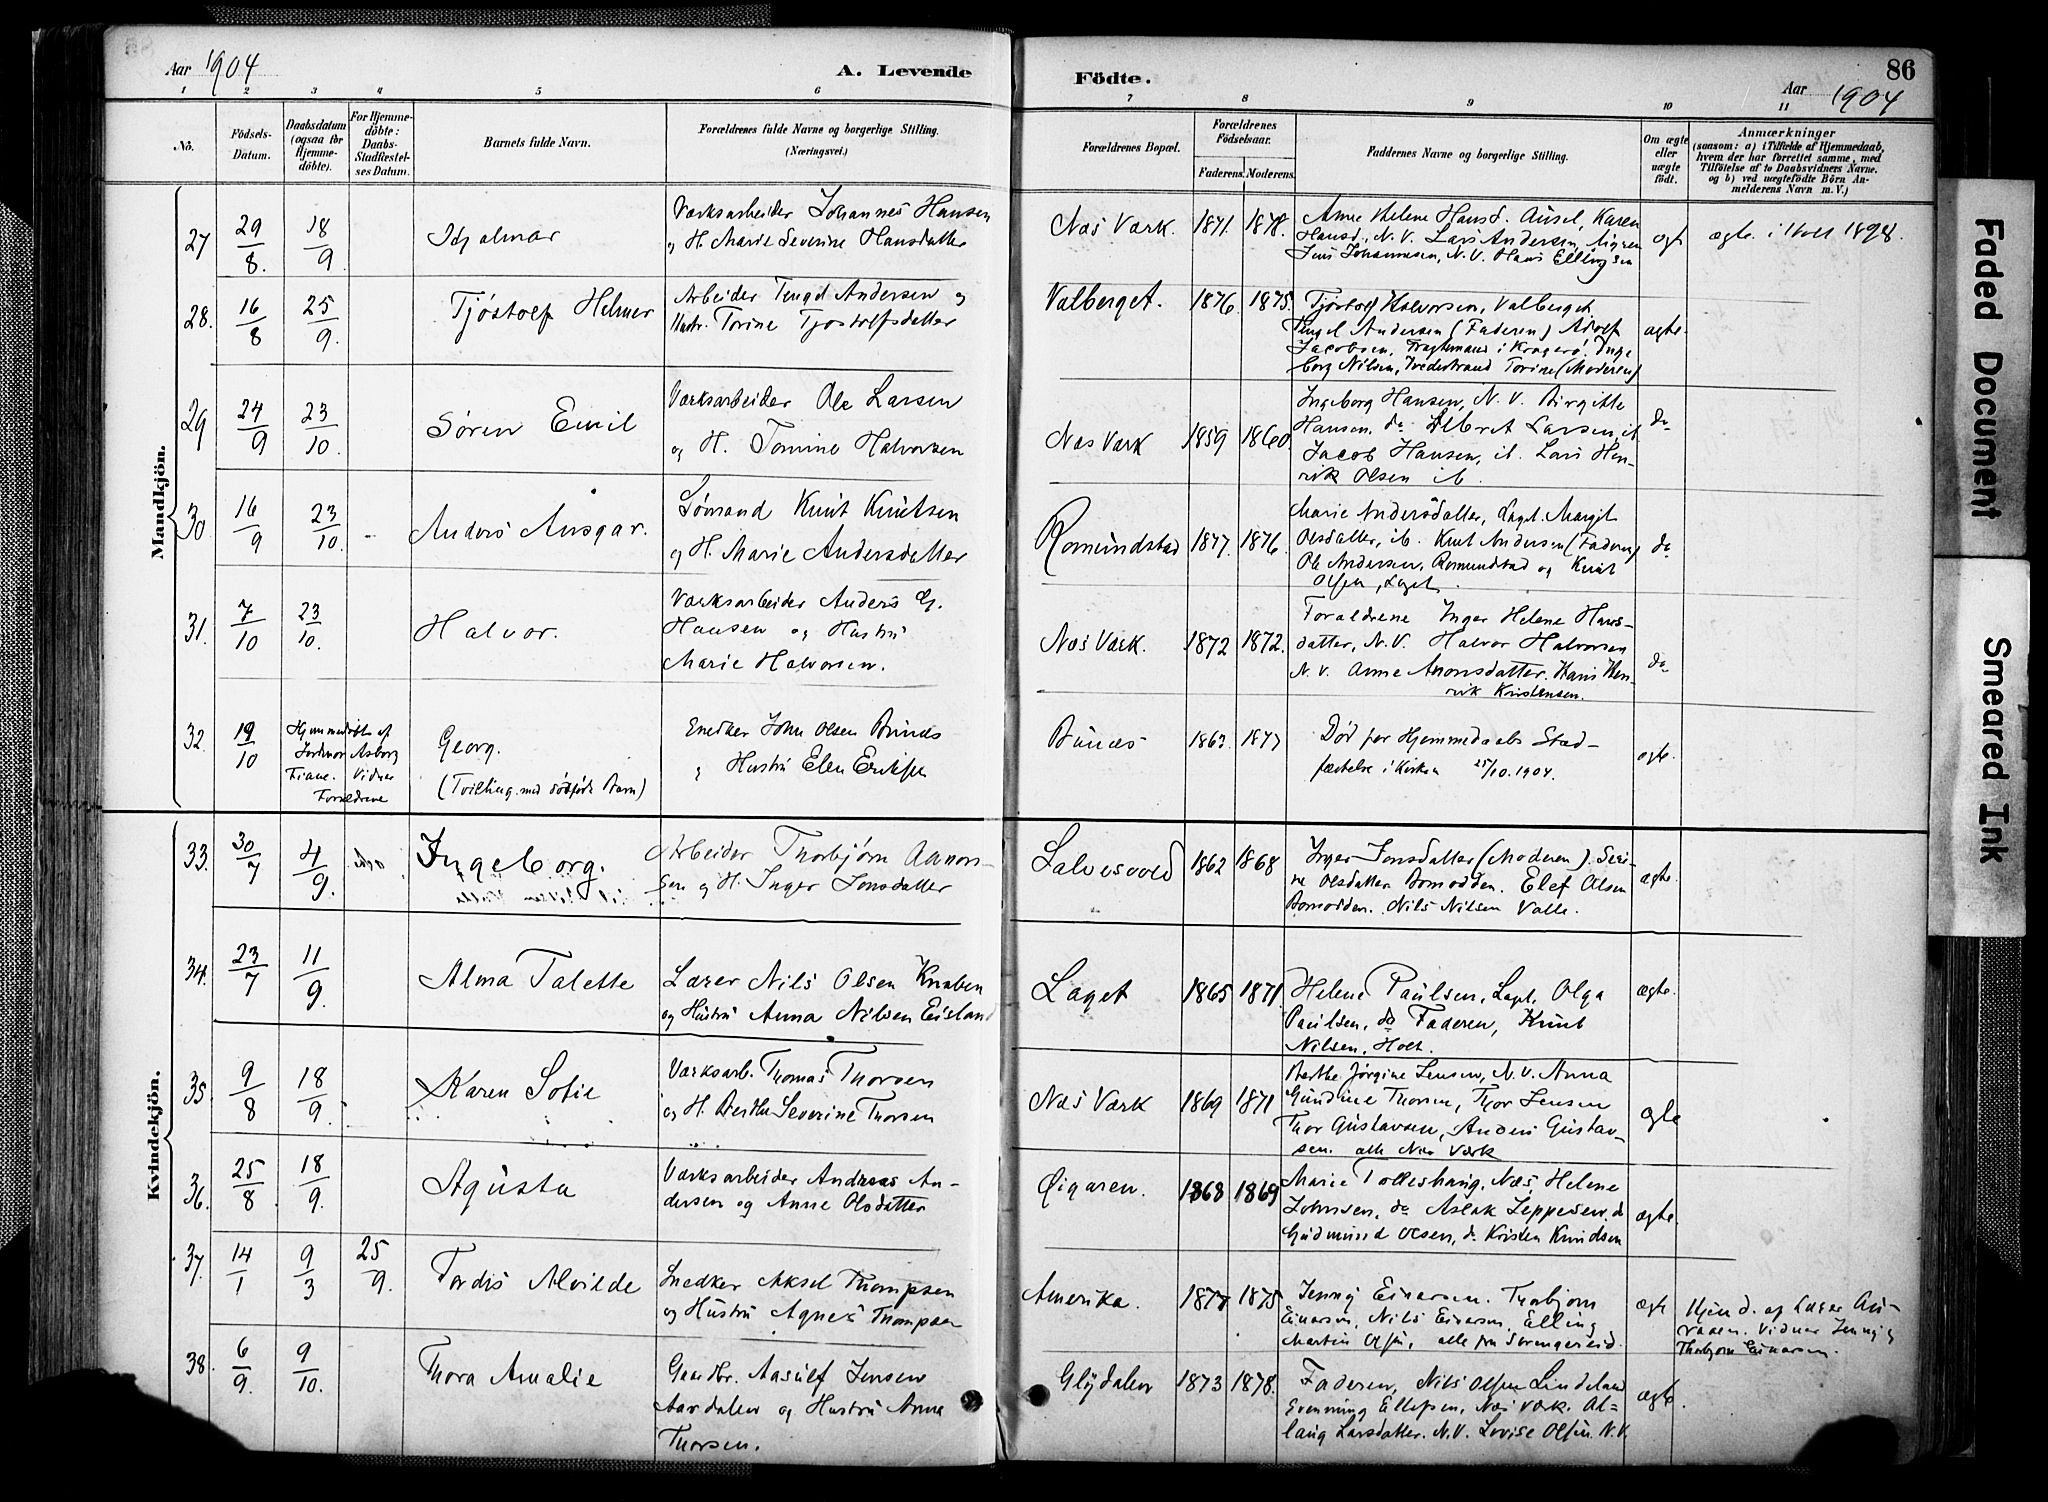 Aar 1904
A. Levende
Födte.
86
Aar 1904
1 2 3 4 5 6 7 8 9 10 11
No.
Födsels-
Datum.
Daabsdatum
(ogsaa for
Hjemme-
döbte).
For Hjemme-
döbte:
Daabs-
Stadfæstel-
ses Datum.
Barnets fulde Navn.
Forældrenes fulde Navne og borgerlige Stilling.
(Næringsvei.)
Forældrenes Bopæl.
Forældrenes
Födselsaar.
Faderens. Moderens.
Faddernes Navne og borgerlige Stilling.
Om ægte
eller
uægte
födt.
Anmærkninger
(saasom: a) i Tilfælde af Hjemmedaab,
hvem der har forrettet samme, med
Tilföielse af to Daabsvidners Navne.
og b) ved uægtefödte Börn An-
melderens Navn m. V.)
Mandkjön.
27 29/8. 18/9 Hjalmar
Værksarbeider Johannes Hansen
og H. Marie Severine Hansdatter
Næs Værk. 1871. 1878.
Anne Helene Hansd. Karen
Hansd., N. V. Lars Andersen,
Jens Johannesen, N. V. Hans Ellingsen
ægt ægte. i Holt 1898.
28. 16/8 25/9. Tjöstolf Helmer
Arbeider Tengel Andersen og
Hustr. Torine Tjostolfsdatter
Valberget. 1876. 1875.
Tjöstolf Halvorsen, Valberget
Tengel Andersen (Faderen) Adolf
Jacobsen, Fragtemand i Kragerö. Inge
borg Nilsen, Tvedestrand Torine (Moderen)
ægte.
29 24/9 23/10. Sören Emil
Værksarbeider Ole Larsen
og H. Tomine Halvorsen
Næs Værk 1859 1860.
Ingeborg Hansen, N. V. Birgitte
Hansen, do Albret Larsen, ib.
Jacob Hansen, ib. Lars Hen-
rik Olsen ib.
do
30. 16/9 23/10. - Anders Ansgar.
Sömand Knut Knutsen
og H. Marie Andersdatter
Romundstad 1877. 1876.
Marie Andersdatter, Laget. Margit
Olsdatter, ib. Knut Andersen (Faderen)
Ole Andersen, Romundstad og Knut
Olsen, Laget.
do
31. 7/10 23/10. Halvor.
Værksarbeider Anders G.
Hansen og Hustru
Marie Halvorsen.
Næs Værk. 1872 1872.
Forældrene Inger Helene Hans-
datter, N. V. Halvor Halvorsen
N. V. Anne Aronsdatter. Hans Hen-
rik Kristensen.
do
32. 19/10
Hjemmedöbt af
Jordmor Asborg
Fiane. Vidner
Forældrene
Georg.
(Tvilling med dödfödt Barn)
Snedker John Olsen Bunæs
og Hustru Elen Eriksen
Bunæs 1863. 1877
Död för Hjemmedaabs Stad-
fæstelse i Kirken 25/10.1904.
ægte.
Kvindekjön.
33. 30/7 4/9. Ingeborg.
Arbeider Thorbjörn Aanon-
sen og H. Inger Jonsdatter
Salvesvold 1862 1868
Inger Jonsdatter (Moderen). Seri-
ne Olsdatter Bomodden. Elef Olsen
Bomodden. Nils Nilsen Valle.
ægte.
34. 23/7 11/9. Alma Talette
Lærer Nils Olsen Knaben
og Hustru Anna Nilsen Eisland
Laget 1865 1871
Helene Paulsen, Laget, Olga
Paulsen, do Faderen, Knut
Nilsen, Holt.
ægte.
35. 9/8 18/9. Karen Sofie
Værksarb. Thomas Thorsen
og H. Berthe Severine Thorsen
Næs Værk 1869 1871
Berthe Jörgine Jensen, N. V. Anna
Gundine Thorsen, Thor Jensen
Thor Gustavsen, Anders Gustav-
sen. alle Næs Værk
ægte
36. 25/8 18/9. Agusta
Værksarbeider Andreas An-
dersen og Anne Olsdatter
Öigaren. 1868 1869
Marie Tolleshaug, Næs, Helene
Johnsen, do Aslak Jeppesen, do
Gudmund Olsen, do Kristen Knudsen
ægte.
37. 14/1 9/3 25/9. Tordis Alvilde
Snedker Aksel Thompsen
og Hustru Agnes Thompsen
Amerika. 1877 1875
Jenny Einarsen. Thorbjörn
Einarsen, Nils Einarsen, Elling
Martin Olsen, alle fra Songevei.
ægte
Hjemd. af Lærer Au-
Vidner Jenny og
Thorbjörn Einarsen.
38. 6/9. 9/10. Thora Amalie
Gaardbr. Aasulf Jensen
Aardalen og Hustru Anna
Thorsen.
Glydalen 1873 1878.
Faderen, Nils Olsen Lindeland
Evenning Ellefsen, Næs Værk. As-
laug Larsdatter. N. V. Lovise Olsen. N. V.
ægte.
Faded Document
Smeared Ink